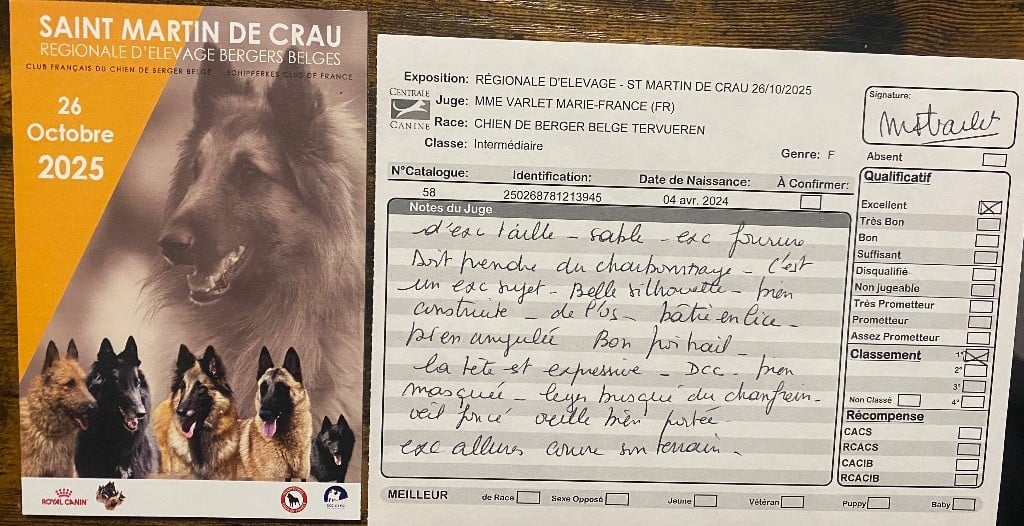 SAINT MARTIN DE CRAU
REGIONALE D'ELEVAGE BERGERS BELGES
CLUB FRANÇAIS DU CHIEN DE BERGER BELGE SCHIPPERKES CLUB DE FRANCE
26
Octobre
2025
ROYAL CANIN
Exposition: RÉGIONALE D'ELEVAGE - ST MARTIN DE CRAU 26/10/2025
CENTRALE
CANINE
Juge: MME VARLET MARIE-FRANCE (FR)
Race: CHIEN DE BERGER BELGE TERVUEREN
Classe: Intermédiaire
Genre: F
Signature:
Absent
N°Catalogue: Identification: Date de Naissance: À Confirmer:
58 250268781213945 04 avr. 2024
Notes du Juge
d'exc taille - sable - exc fourrure
Doit prendre du charbonnage - C'est
un exc sujet - Belle silhouette - bien
construite - de l'os - bâtie en lice -
bien angulée Bon poitrail -
la tête est expressive - DCC - bien
masquée - legn busqué du chanfrein -
oeil foncé oreille bien portée -
exc allures couvre son terrain -
Qualificatif
Excellent
Très Bon
Bon
Suffisant
Disqualifié
Non jugeable
Très Prometteur
Prometteur
Assez Prometteur
Classement 1°
2°
3°
Non Classé 4°
Récompense
CACS
RCACS
CACIB
RCACIB
MEILLEUR de Race Sexe Opposé Jeune Vétéran Puppy Baby